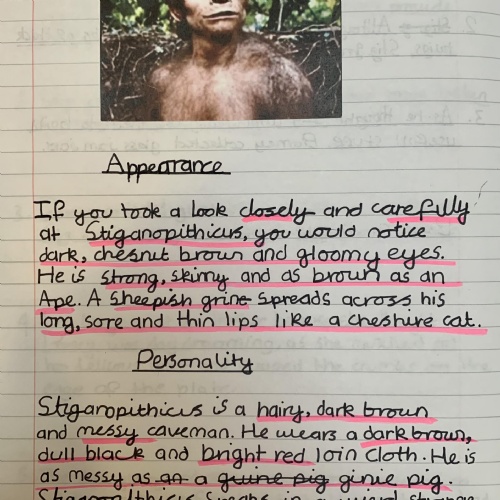 Appearance
If you took a look closely and carefully
at Stiganopithicus, you would notice
dark, chesnut brown and gloomy eyes.
He is strong, skinny and as brown as an
Ape. A sheepish grine spreads across his
long, sore and thin lips like a cheshire cat.
Personality
Stiganopithicus is a hairy, dark brown
and messy caveman. He wears a dark brown,
dull black and bright red loin cloth. He is
as messy as an a guine pig ginie pig.